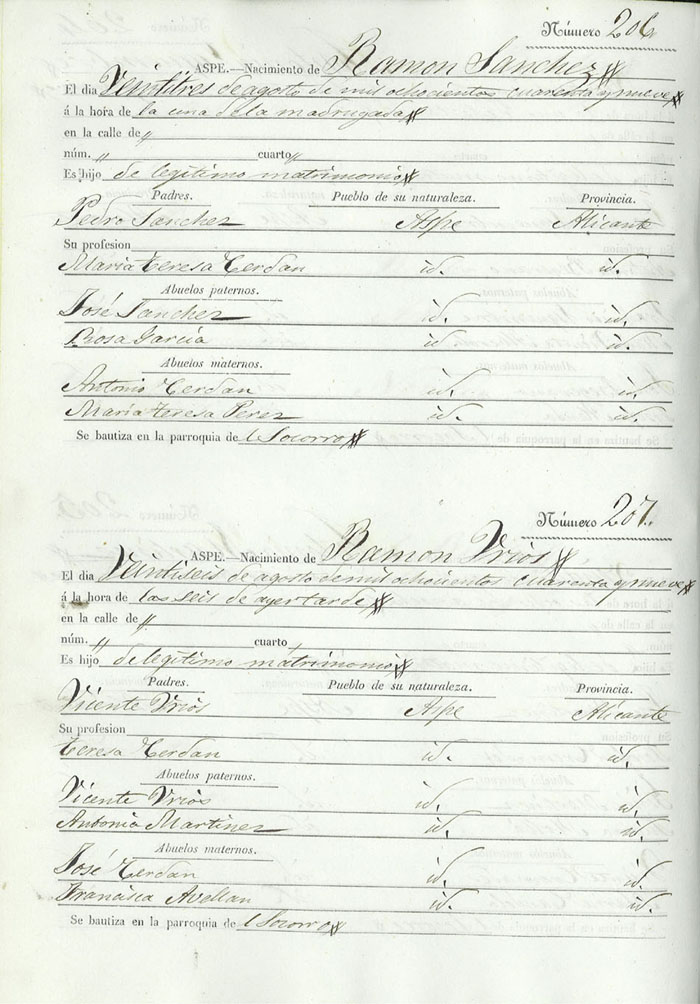 Número 206
ASPE.—Nacimiento de Ramon Sanchez
El dia Veintitres de agosto de mil ochocientos cuarenta y nueve
á la hora de la una de la madrugada
en la calle de "
núm. " cuarto "
Es hijo de legitimo matrimonio
Padres. Pueblo de su naturaleza. Provincia.
Pedro Sanchez Aspe Alicante
Su profesion
Maria Teresa Cerdan id. id.
Abuelos paternos.
José Sanchez id. id.
Rosa Garcia id. id.
Abuelos maternos.
Antonio Cerdan id. id.
Maria Teresa Perez id. id.
Se bautiza en la parroquia de l Socorro
Número 207.
ASPE.—Nacimiento de Ramon Vrios
El dia Veintiseis de agosto de mil ochocientos cuarenta y nueve
á la hora de las seis de ayer tarde
en la calle de "
núm. " cuarto
Es hijo de legitimo matrimonio
Padres. Pueblo de su naturaleza. Provincia.
Vicente Vrios Aspe Alicante
Su profesion
Teresa Cerdan id. id.
Abuelos paternos.
Vicente Vrios id. id.
Antonia Martinez id. id.
Abuelos maternos.
José Cerdan id. id.
Francisca Avellan id. id.
Se bautiza en la parroquia de l Socorro